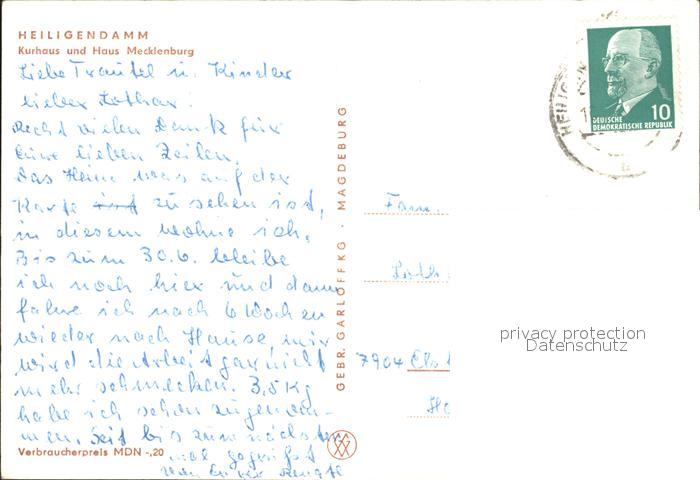 HEILIGENDAMM
Kurhaus und Haus Mecklenburg
Liebe Trautel u. Kinder
lieber Lothar!
Recht vielen Dank für
Eure lieben Zeilen.
Das Heim was auf der
Karte ist zu sehen ist,
in diesem wohne ich.
Bis zum 30.6. bleibe
ich noch hier und dann
fahre ich nach 6 Wochen
wieder nach Hause, mir
wird die Arbeit gar nicht
mehr schmecken. 3,5 Kg
habe ich schon zugenom-
men. Seid bis zum nächsten
mal gegrüßt
von Eurer
Verbraucherpreis MDN -,20
GEBR. GARLOFFKG · MAGDEBURG
DEUTSCHE
DEMOKRATISCHE REPUBLIK
10
HEILIG
Fam.
Loth
7904 Els
Ho
privacy protection
Datenschutz